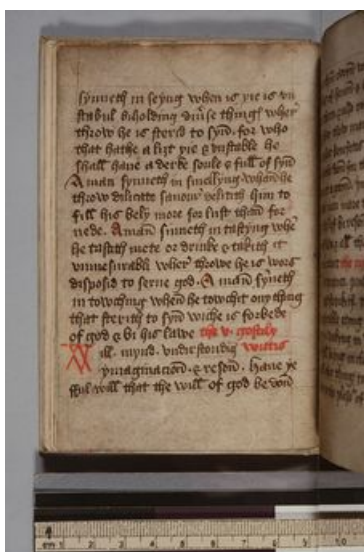 synneth in seyng when is yie is vn
stabul & holding diu'se things wher
throw he is sterid to syn. for who
that hathe a liȝt yie & vnstable he
shall have a derke soule & full of syn
A man synneth in smellyng whan he
throw dilicate savour delitith him to
fill his bely more for lust than for
nede. A man sinneth in tastyng whe
he tastith mete or drinke & takith it
vnmesurabli wher throwe he is wors
disposid to serue god. A man synneth
in towching when he towchit ony thing
that sterith to syn wiche is forbede
of god & bi his lawe the v. gostely
Will. mynd. vndirstondig wittis
ymaginacion. & reson. Have ye
full will that the will of god be don
cm 1 2 3 4 5 6 7 8 9 10